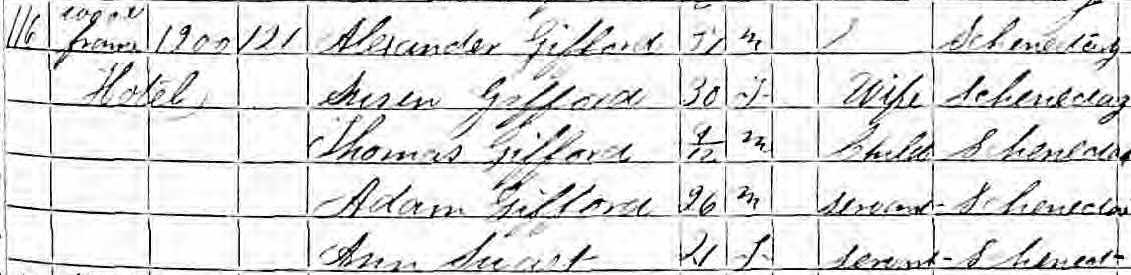 116 wood frame 1200 121 Alexander Gifford 37 m Schenectady
Hotel Susen Gifford 30 F Wife Schenectady
Thomas Gifford 9/12 m Child Schenectad
Adam Gifford 26 m servant Schenectad
Ann Swart 21 F servant Schenect